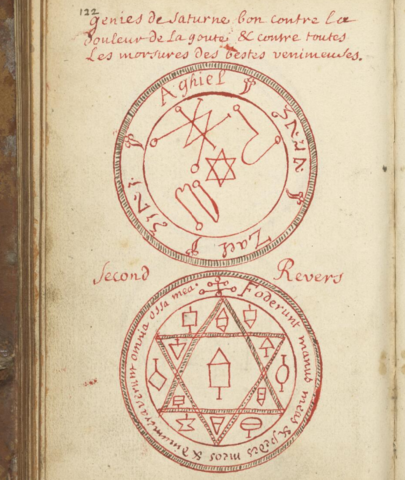 122
genies de Saturne, bon contre La
Douleur de La goute, & contre toutes
Les morsures des bestes venimeuses.
Aghiel
Zael
Second Revers
Foderunt manus meas & pedes meos & dinumeraverunt omnia ossa mea.